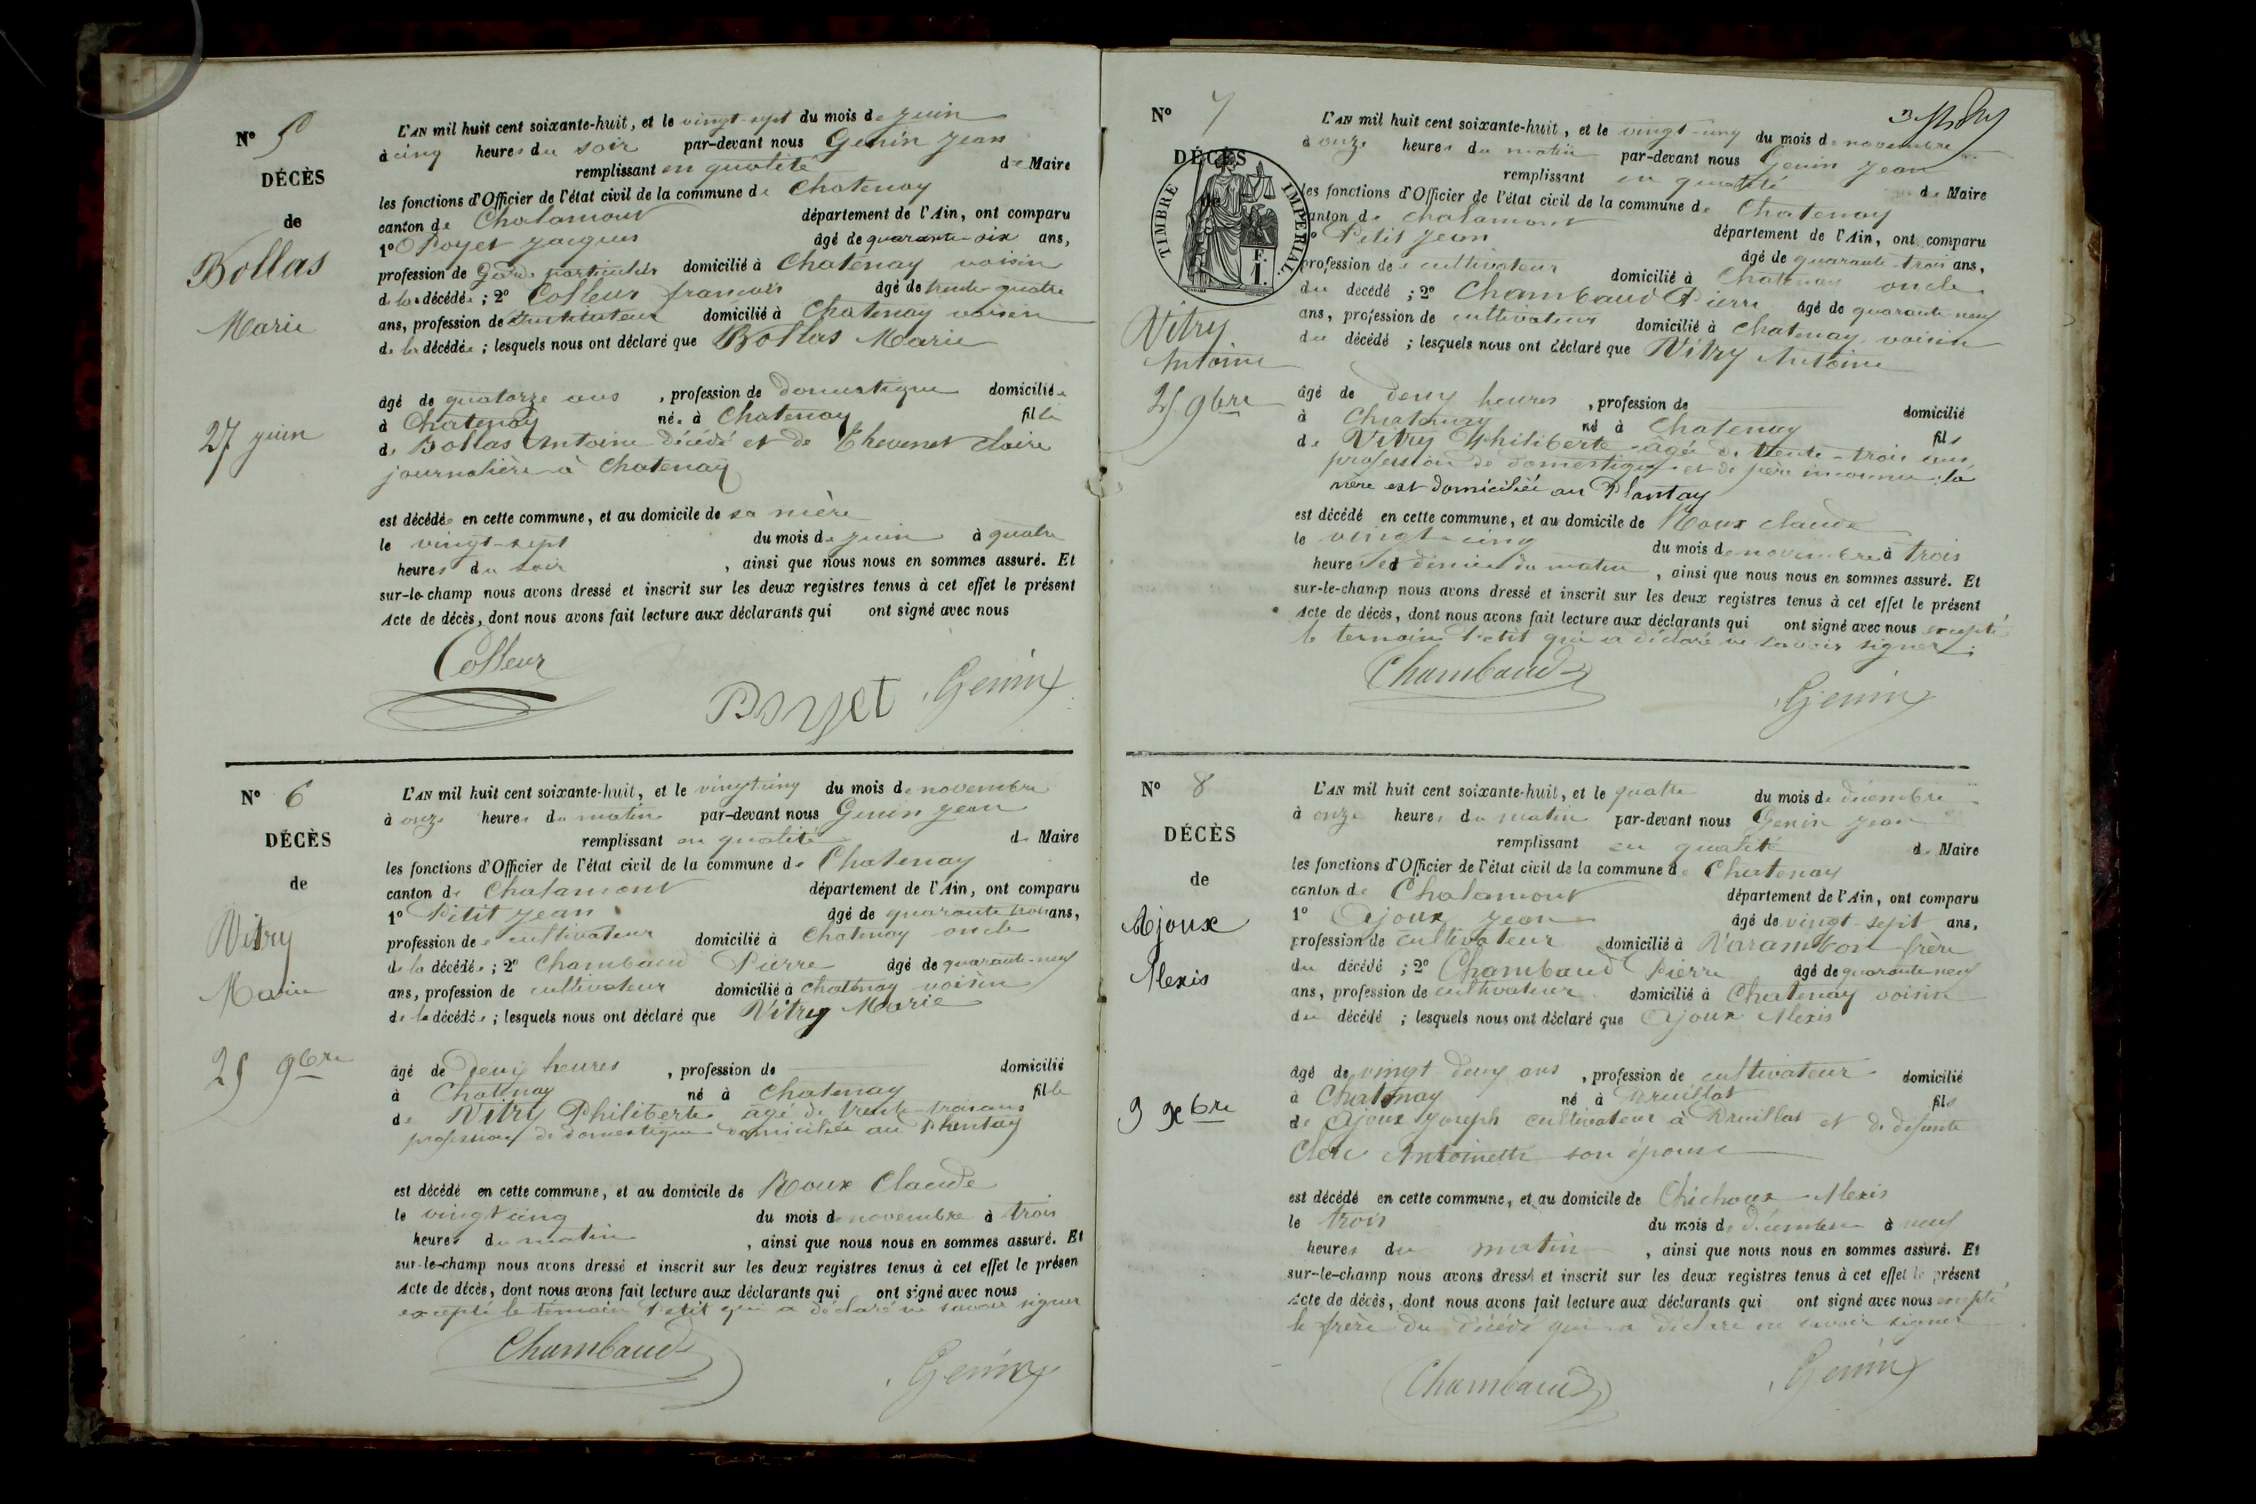 N° 5
DÉCÈS
de
Bollas
Marie
27 juin
L'AN mil huit cent soixante-huit, et le vingt-sept du mois de juin
à cinq heures du soir par-devant nous Genin Jean
remplissant en qualité de Maire
les fonctions d'Officier de l'état civil de la commune de Chatenay
canton de Chalamont département de l'Ain, ont comparu
1° Poyet Jacques âgé de quarante-six ans,
profession de Garde particulier domicilié à Chatenay voisin
de la décédée ; 2° Colleur françois âgé de trente quatre
ans, profession de Instituteur domicilié à Chatenay voisin
de la décédée ; lesquels nous ont déclaré que Bollas Marie
âgé de quatorze ans , profession de domestique domiciliée
à Chatenay née à Chatenay fille
de Bollas Antoine décédé et de Thevenet Claire
journalière à Chatenay
est décédée en cette commune, et au domicile de sa mère
le vingt-sept du mois de juin à quatre
heures du soir , ainsi que nous nous en sommes assuré. Et
sur-le-champ nous avons dressé et inscrit sur les deux registres tenus à cet effet le présent
Acte de décès, dont nous avons fait lecture aux déclarants qui ont signé avec nous
Colleur
Poyet Genin
N° 6
DÉCÈS
de
Vitry
Marie
25 9bre
L'AN mil huit cent soixante-huit, et le vingt cinq du mois de novembre
à onze heures du matin par-devant nous Genin Jean
remplissant en qualité de Maire
les fonctions d'Officier de l'état civil de la commune de Chatenay
canton de Chalamont département de l'Ain, ont comparu
1° Petit Jean âgé de quarante trois ans,
profession de cultivateur domicilié à Chatenay oncle
de la décédée ; 2° Chambaud Pierre âgé de quarante-neuf
ans, profession de cultivateur domicilié à Chatenay voisin
de la décédée ; lesquels nous ont déclaré que Vitry Marie
âgé de Deux heures , profession de domicilié
à Chatenay né à Chatenay fille
de Vitry Philiberte âgé de trente-trois ans
profession de domestique domiciliée au Plantay
est décédé en cette commune, et au domicile de Roux Claude
le vingt cinq du mois de novembre à trois
heures du matin , ainsi que nous nous en sommes assuré. Et
sur-le-champ nous avons dressé et inscrit sur les deux registres tenus à cet effet le présen
Acte de décès, dont nous avons fait lecture aux déclarants qui ont signé avec nous
excepté le témoin Petit qui a déclaré ne savoir signer
Chambaud
Genin
N° 7
DÉCÈS
de
TIMBRE IMPÉRIAL
F.
1.
Vitry
Antoine
25 9bre
L'AN mil huit cent soixante-huit, et le vingt-cinq du mois de novembre
à onze heures du matin par-devant nous Genin Jean
remplissant en qualité de Maire
les fonctions d'Officier de l'état civil de la commune de Chatenay
canton de chalamont département de l'Ain, ont comparu
Petit Jean âgé de quarante-trois ans,
profession de cultivateur domicilié à Chatenay oncle
du décédé ; 2° Chambaud Pierre âgé de quarante-neuf
ans, profession de cultivateur domicilié à Chatenay voisin
du décédé ; lesquels nous ont déclaré que Vitry Antoine
âgé de deux heures , profession de domicilié
à Chatenay né à Chatenay fils
de Vitry Philiberte âgée de trente-trois ans
profession de domestique et de père inconnu la
mère est domiciliée au Plantay
est décédé en cette commune, et au domicile de Roux claude
le vingt-cinq du mois de novembre à trois
heure et demie du matin , ainsi que nous nous en sommes assuré. Et
sur-le-champ nous avons dressé et inscrit sur les deux registres tenus à cet effet le présent
Acte de décès, dont nous avons fait lecture aux déclarants qui ont signé avec nous excepté
le temoin Petit qui a déclaré ne savoir signer
Chambaud
Genin
N° 8
DÉCÈS
de
Ajoux
Alexis
3 Xbre
L'AN mil huit cent soixante-huit, et le quatre du mois de décembre
à onze heures du matin par-devant nous Genin Jean
remplissant en qualité de Maire
les fonctions d'Officier de l'état civil de la commune de Chatenay
canton de Chalamont département de l'Ain, ont comparu
1° Ajoux Jean âgé de vingt-sept ans,
profession de cultivateur domicilié à Varambon frère
du décédé ; 2° Chambaud Pierre âgé de quarante-neuf
ans, profession de cultivateur domicilié à Chatenay voisin
du décédé ; lesquels nous ont déclaré que Ajoux Alexis
âgé de vingt deux ans , profession de cultivateur domicilié
à Chatenay né à Druillat fils
de Ajoux Joseph cultivateur à Druillat et de defunte
Clerc Antoinette son épouse
est décédé en cette commune, et au domicile de Chichoux Alexis
le trois du mois de décembre à neuf
heures du matin , ainsi que nous nous en sommes assuré. Et
sur-le-champ nous avons dressé et inscrit sur les deux registres tenus à cet effet le présent
Acte de décès, dont nous avons fait lecture aux déclarants qui ont signé avec nous excepté
le frère du décédé qui a déclaré ne savoir signer
Chambaud
Genin